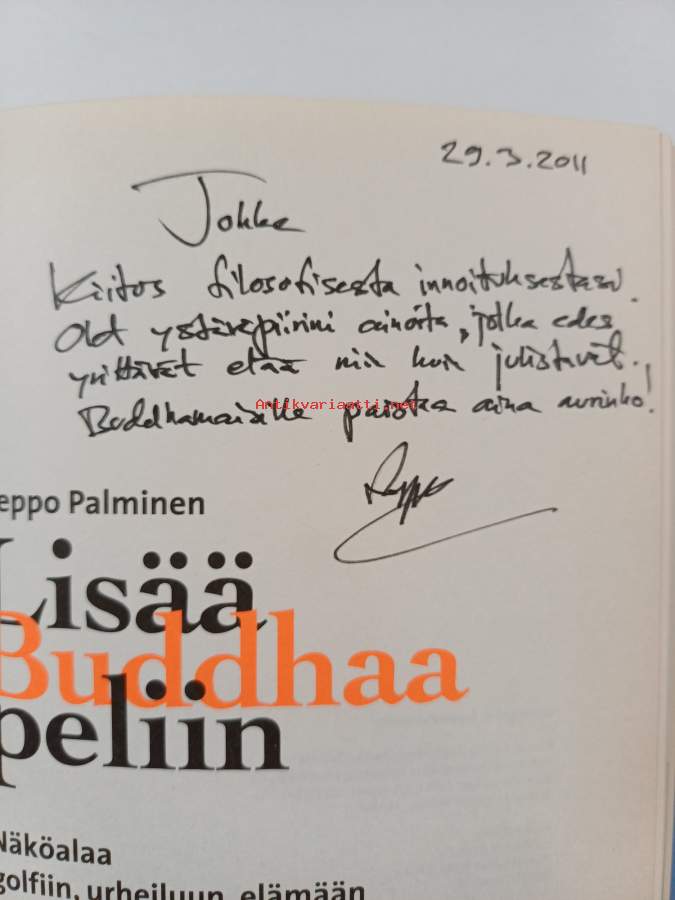 29.3.2011
Jokke
Kiitos filosofisesta innoituksestasi.
Olet ystäväpiirini ainoita, jotka edes
yrittävät elää niin kuin julistavat.
Buddhamaisille paistaa aina aurinko!
Antikvariaatti.net
Reppo
eppo Palminen
Lisää
Buddhaa
peliin
Näköalaa
golfiin, urheiluun, elämään